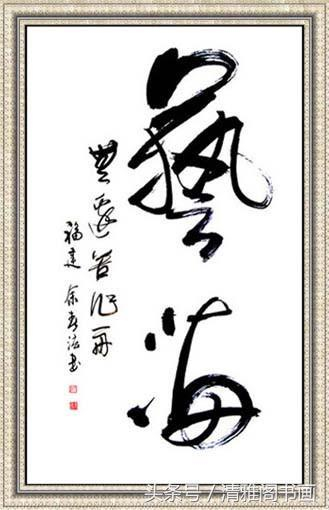 藝海
無邊苦作舟
福建 余 书
头条号 / 清雅阁书画